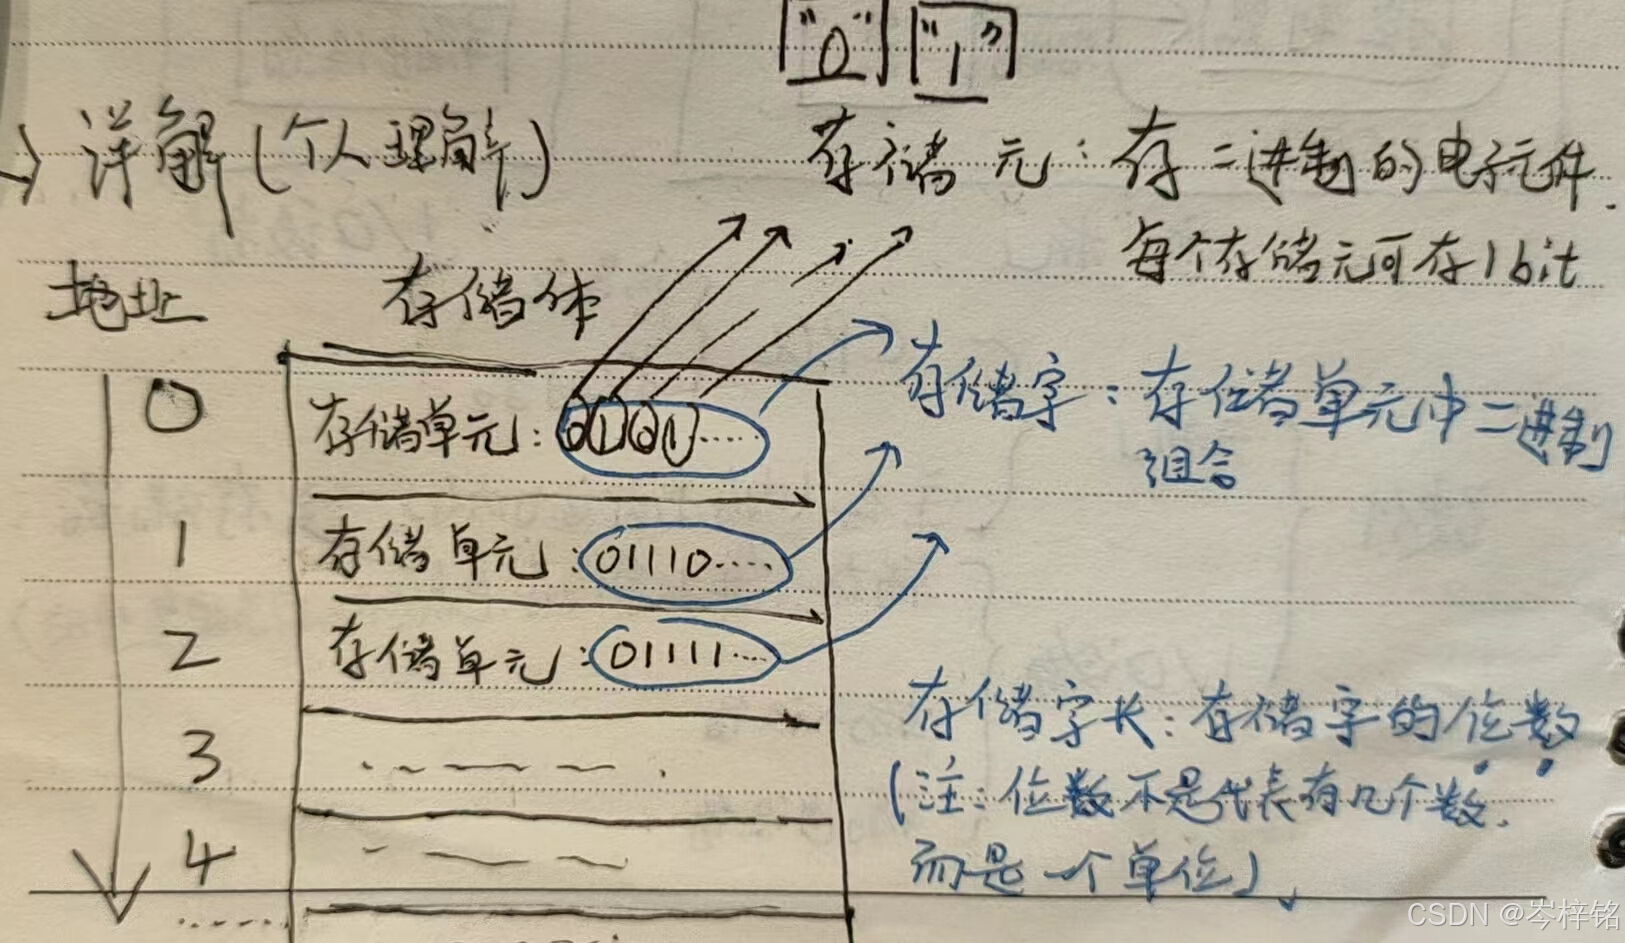 "0" "1"
详解(个人理解)
存储元：存二进制的电子元件.
每个存储元可存1bit
地址 存储体
0 存储单元：0101······
存储字：存储单元中二进制
组合
1 存储单元：01110·····
2 存储单元：01111····
3
4
······
存储字长：存储字的位数
(注：位数不是代表有几个数.
而是一个单位)
CSDN @岑梓铭